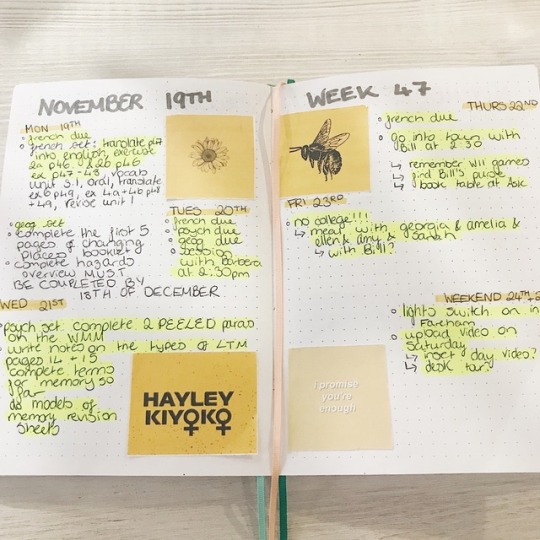 NOVEMBER 19TH
MON 19TH
french due
french set: translate p47
into english, exercise
2a p46, 2b p46
ex p47-48 vocab
unit 5.1, oral, translate
ex 6 p49, ex 4a+4b p48
+49, revise unit 1
geog set
complete the first 5
pages of changing
places booklet
complete hazards
overview MUST
BE COMPLETED BY
18TH OF DECEMBER
TUES 20TH
french due
psych due
geog due
session
with barbera
at 2:30pm
WED 21ST
psych set: complete 2 PEELED paras
on the WMM
write notes on the types of LTM
pages 14 + 15
complete terms
for memory so
far
do models of
memory revision
sheets
HAYLEY
KIYOKO
WEEK 47
THURS 22ND
french due
go into town with
Bill at 2:30
remember wii games
find Bill's purse
book table at Ask
FRI 23RD
no college!!!
meal with georgia & amelia &
ellen & amy & sarah
with Bill?
WEEKEND 24TH
lights switch on in
Fareham
upload video on
Saturday
inset day video?
desk tour?
i promise
you're
enough